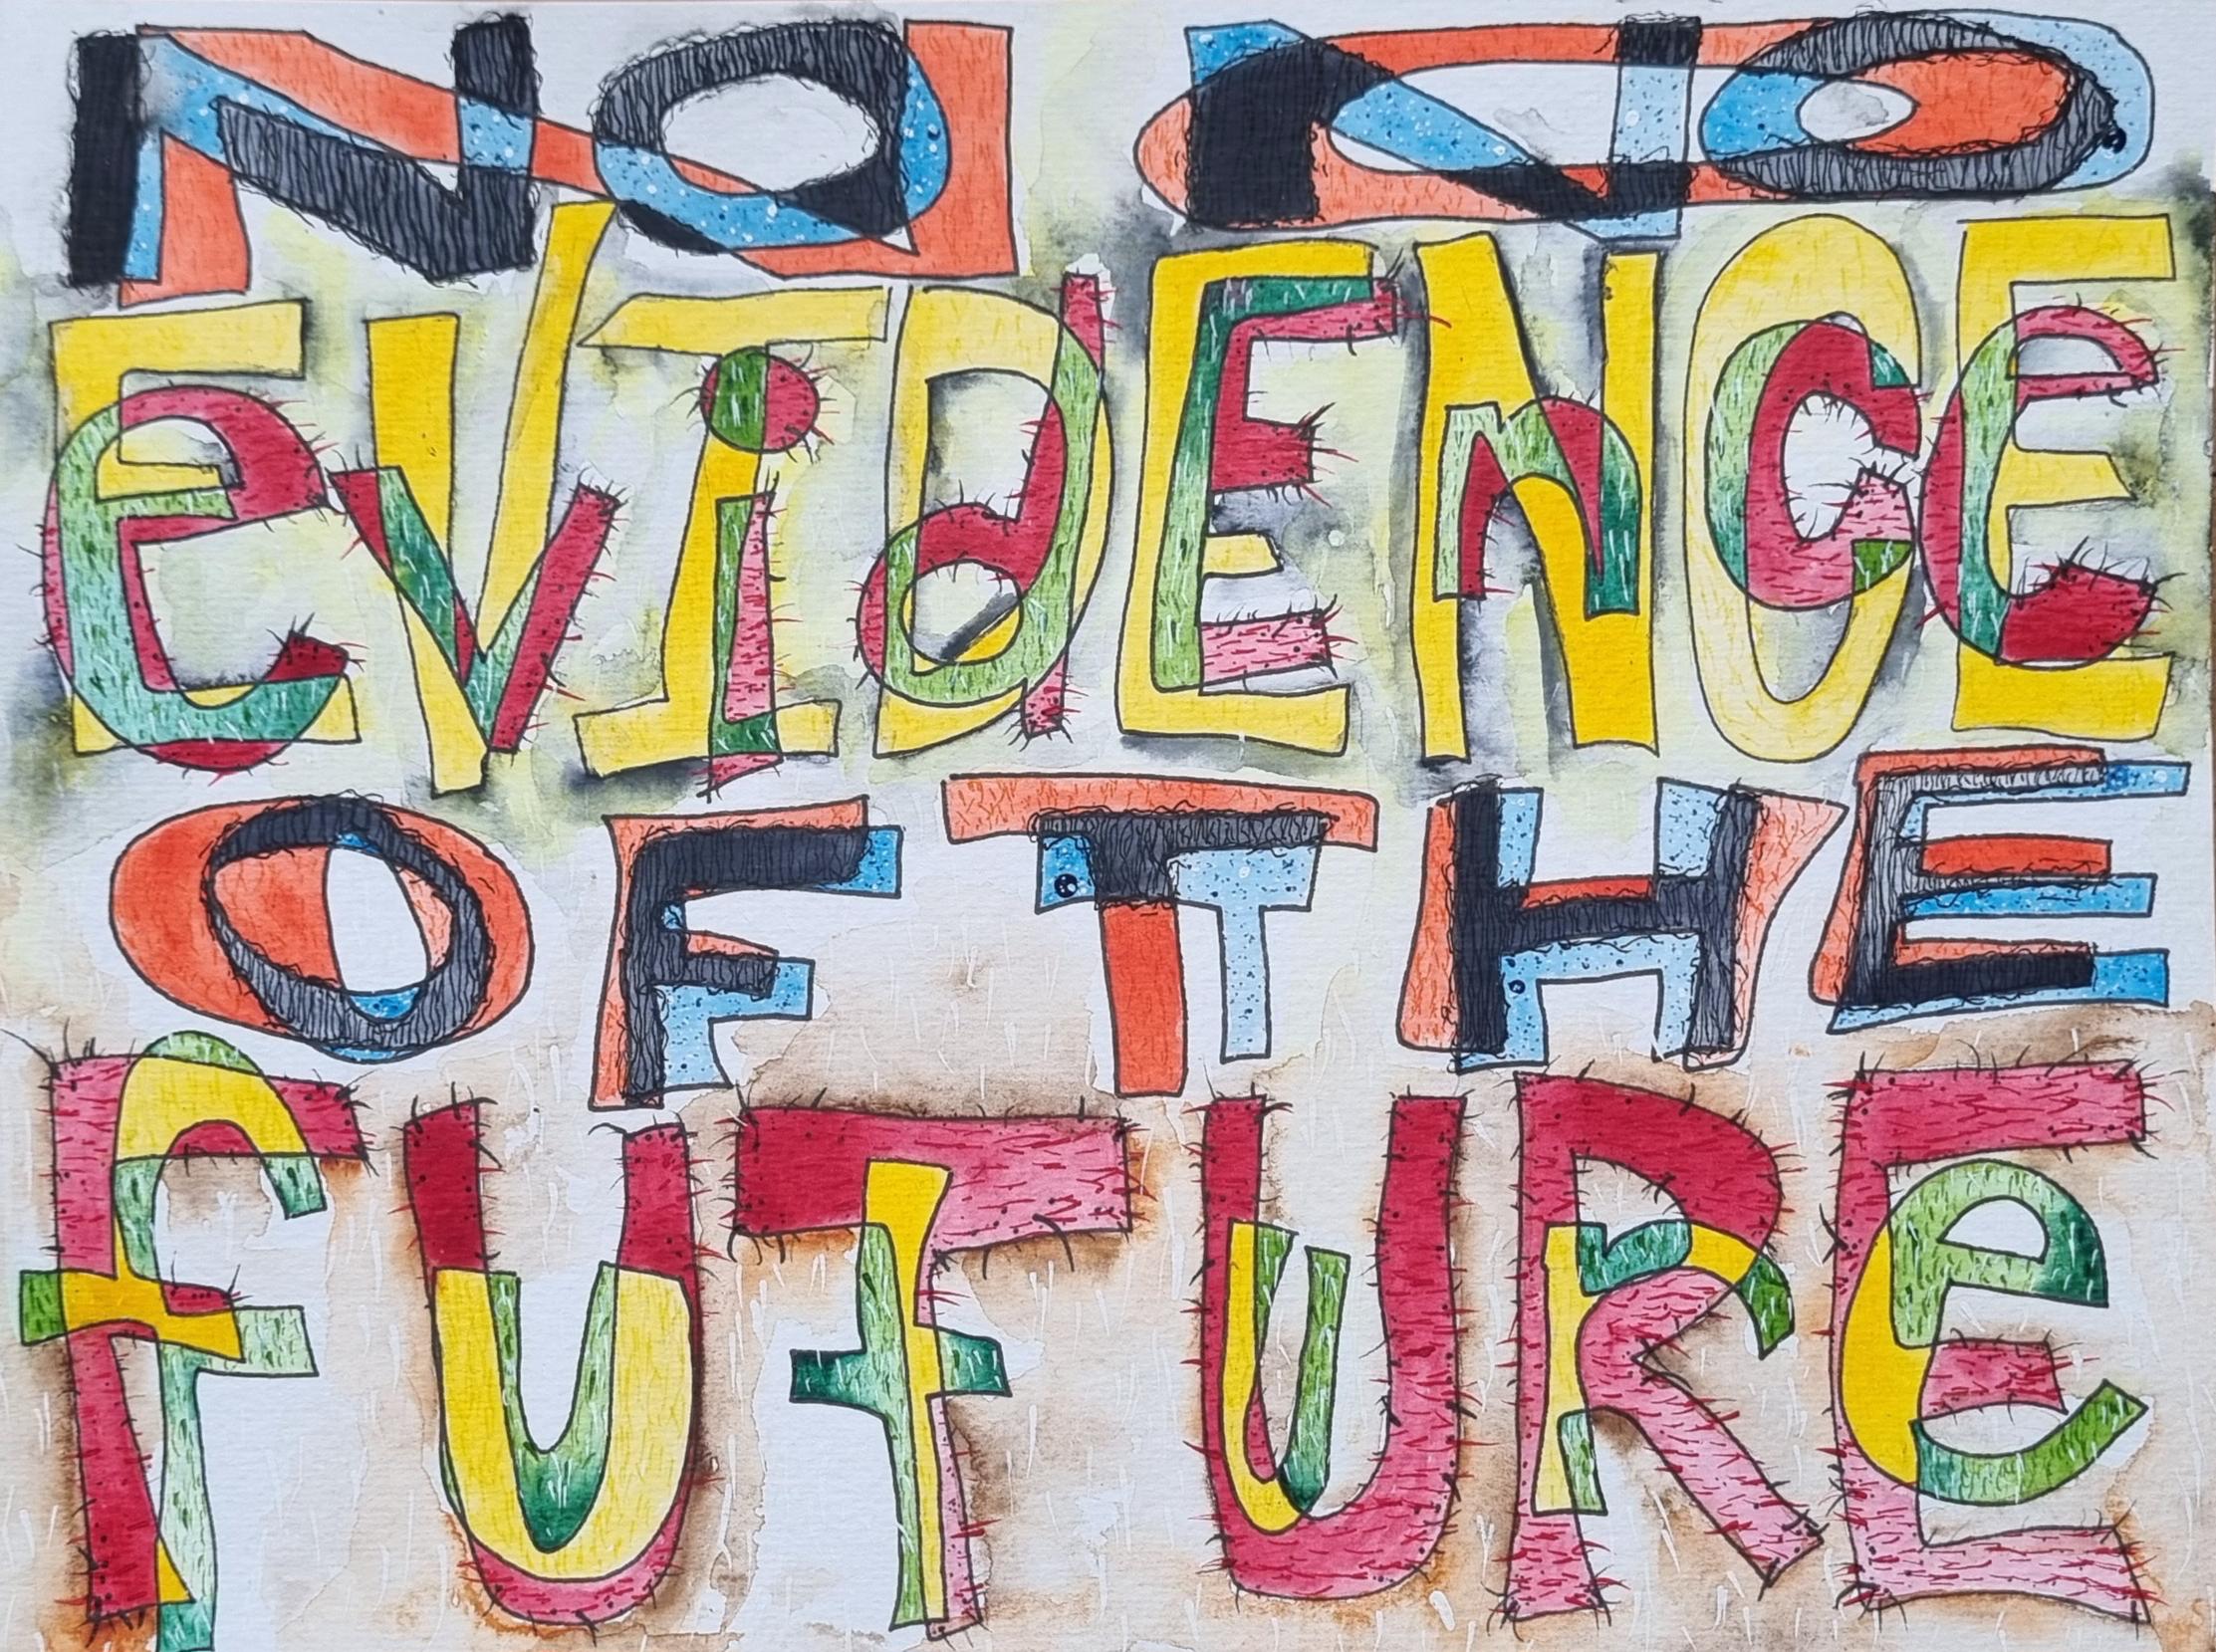 NO NO
EVIDENCE
OF THE
FUTURE